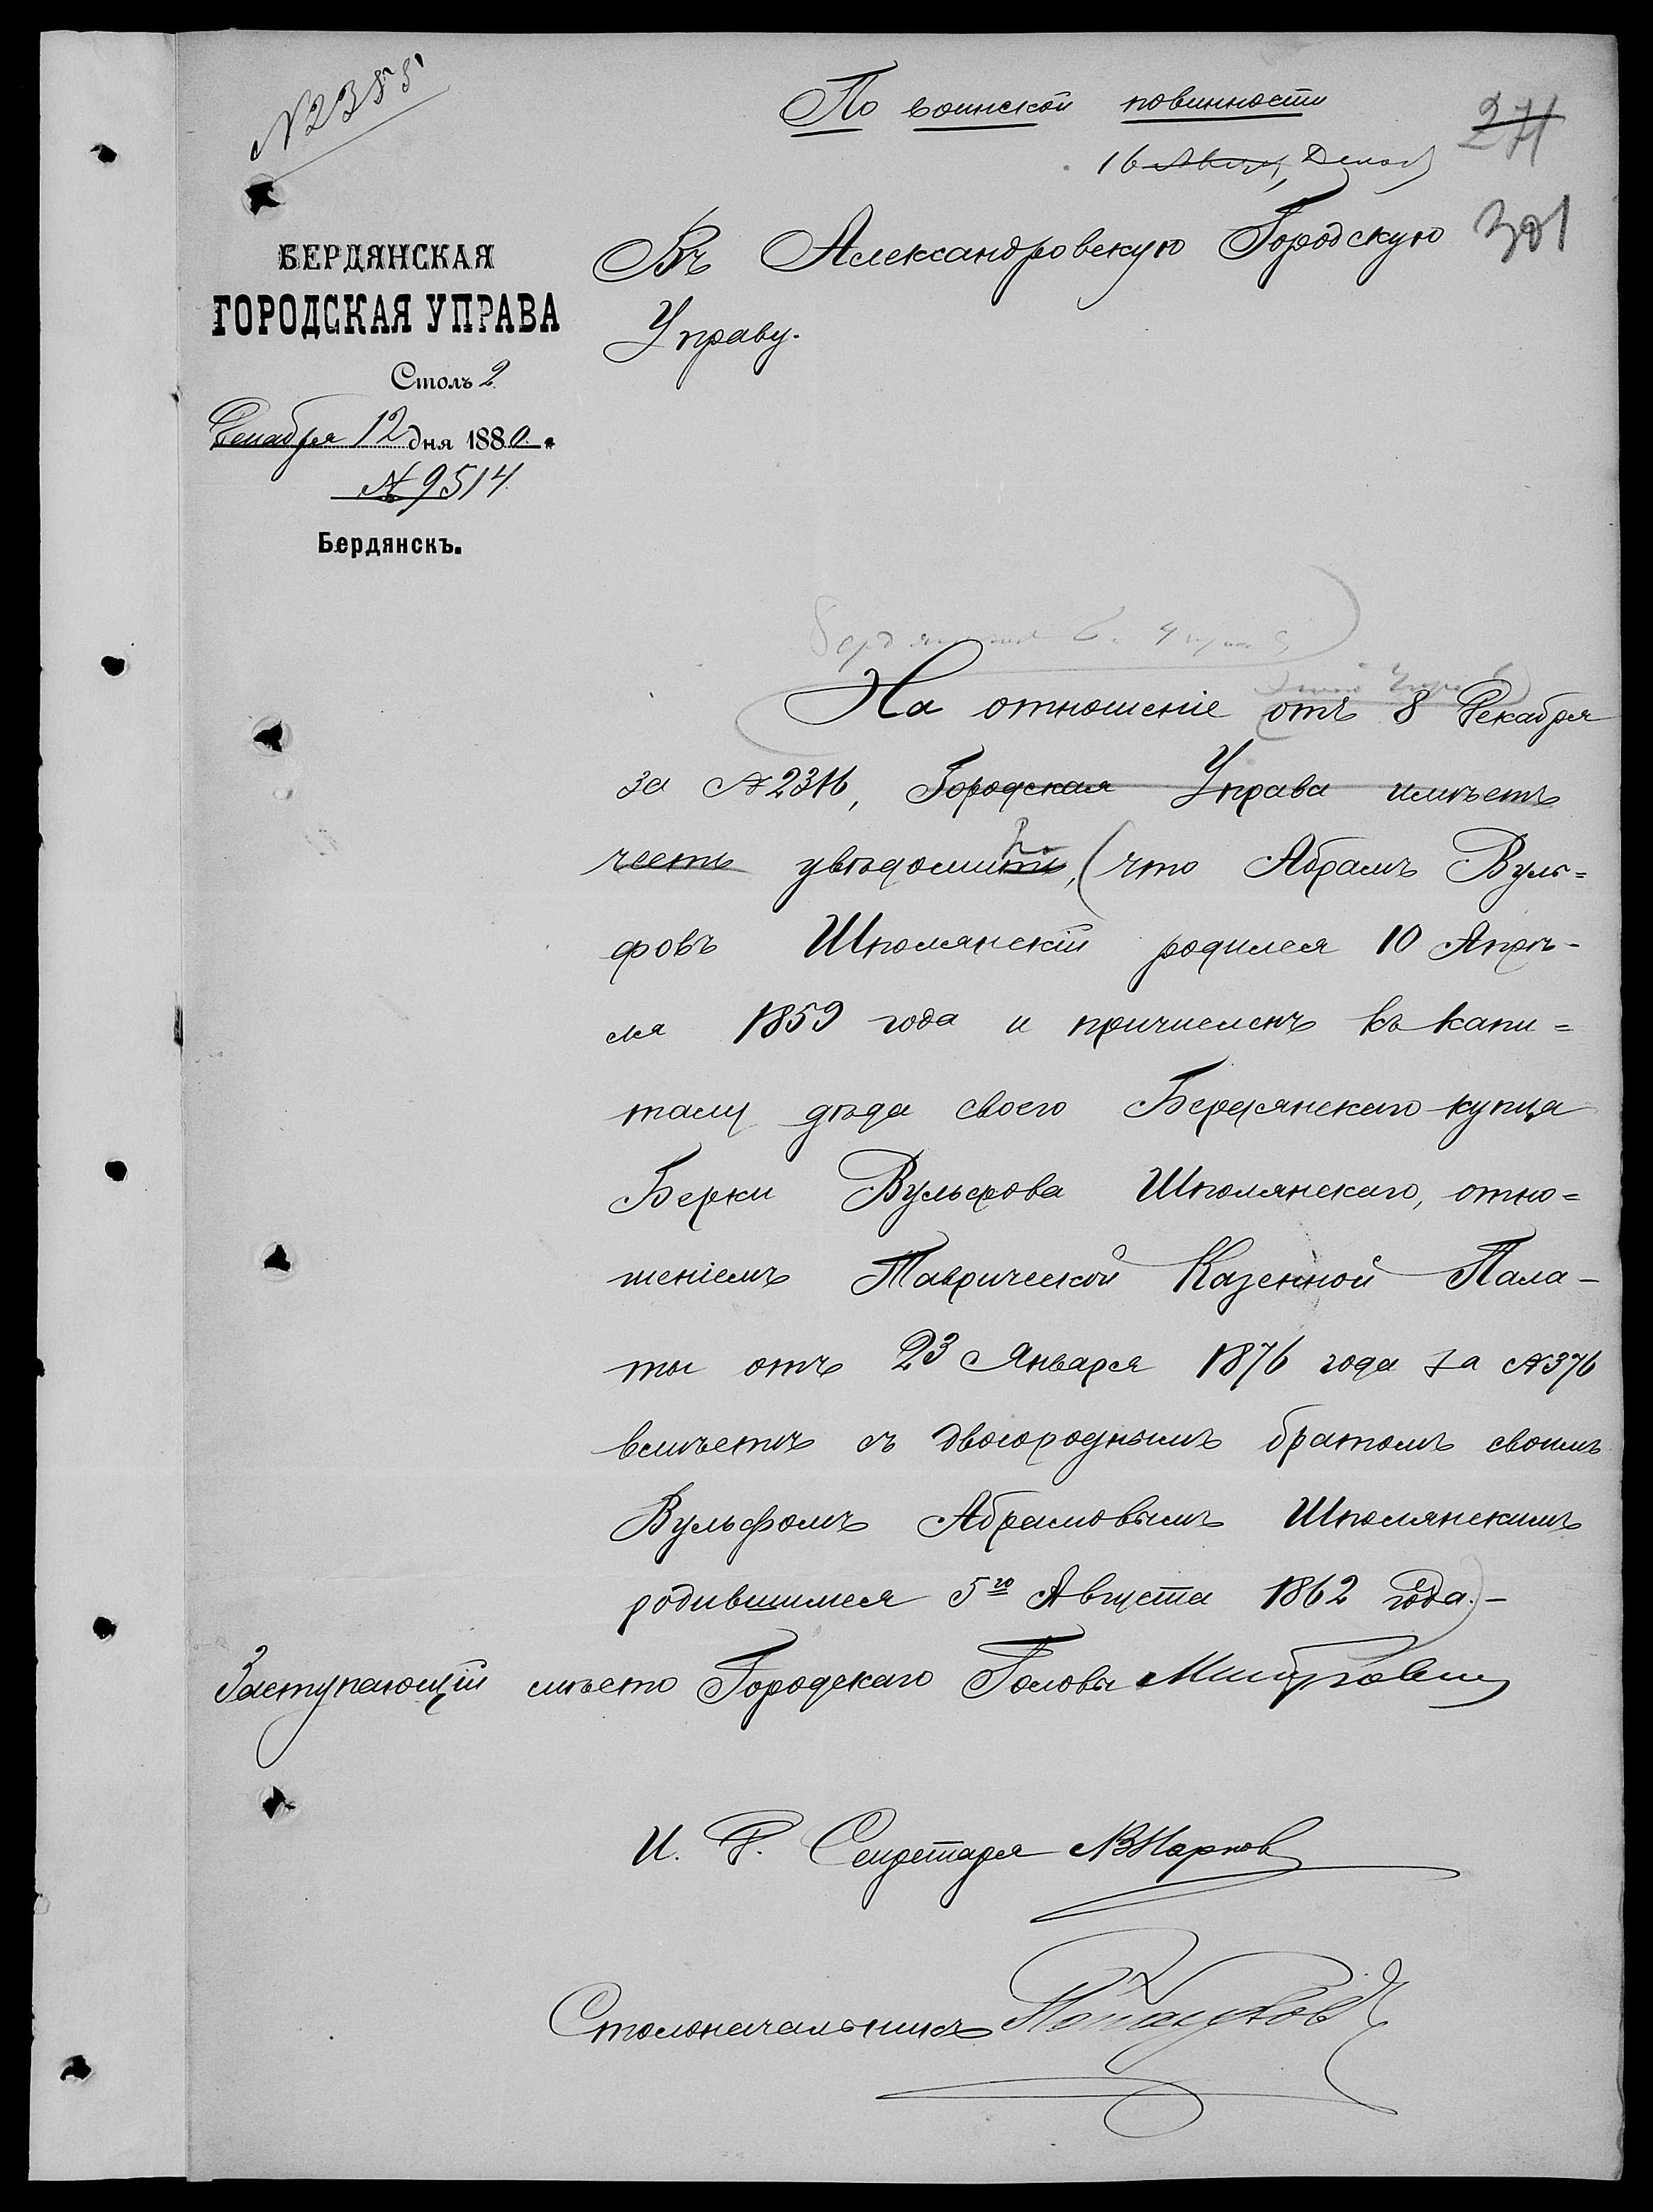 № 2385
По воинской повинности
271
16 Декаб
301
БЕРДЯНСКАЯ
ГОРОДСКАЯ УПРАВА
Столъ 2
Декабря 12 дня 1880 г.
№ 9514
Бердянскъ.
Въ Александровскую Городскую
Управу.
На отношеніе отъ 8 Декабря
за № 2316, Городская Управа имѣетъ
честь увѣдомить, (что Абрамъ Вуль=
фовъ Шполянскій родился 10 Апрѣ-
ля 1859 года и причисленъ къ капи=
талу дѣда своего Бердянскаго купца
Берки Вульфова Шполянскаго, отно=
шеніемъ Таврической Казенной Пала-
ты отъ 23 Января 1876 года за № 376
вмѣстѣ съ двоюроднымъ братомъ своимъ
Вульфомъ Абрамовымъ Шполянскимъ
родившимся 5го Августа 1862 года.)-
Заступающій мѣсто Городскаго Головы
И. Д. Секретаря
Столоначальникъ